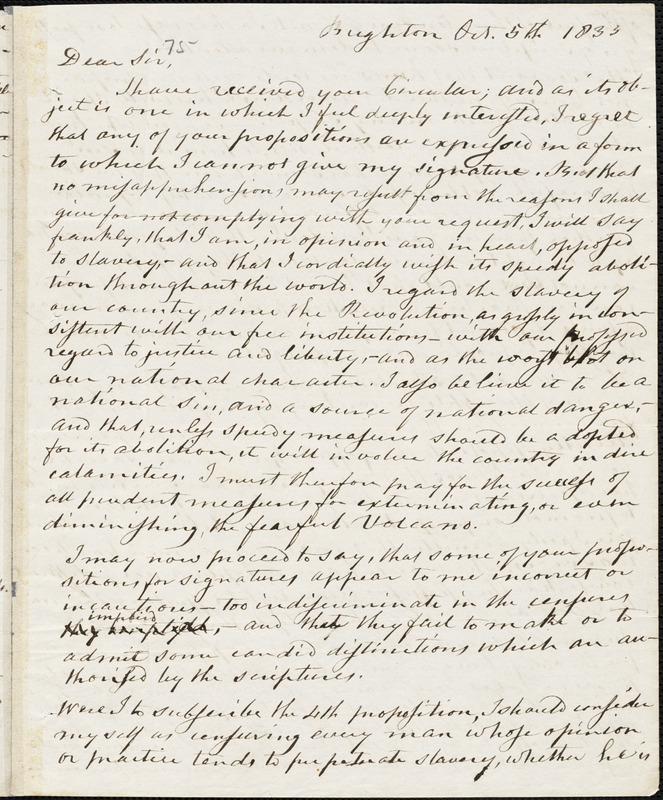 Brighton Oct. 5th 1833
75
Dear Sir,
I have received your Circular; and as its ob-
ject is one in which I feel deeply interested, I regret
that any of your propositions are expressed in a form
to which I can not give my signature. But that
no misapprehensions may result from the reasons I shall
give for not complying with your request, I will say
frankly, that I am, in opinion and in heart, opposed
to slavery,- and that I cordially wish its speedy aboli-
tion throughout the world. I regard the slavery of
our country, since the Revolution, as grossly incon-
sistent with our free institutions - with our professed
regard to justice and liberty,- and as the worst blot on
our national character. I also believe it to be a
national sin, and a source of national danger,-
and that, unless speedy measures should be adopted
for its abolition, it will involve the country in dire
calamities. I must therefore pray for the success of
all prudent measures for exterminating, or even
diminishing, the fearful Volcano.
I may now proceed to say, that some of your propo-
sitions for signatures appear to me incorrect or
incautious - too indiscriminate in the censures
implied,- and that they fail to make or to
admit some candid distinctions which are au-
thorised by the scriptures.
Were I to subscribe the 4th proposition, I should consider
myself as censuring every man whose opinion
or practice tends to perpetuate slavery, whether he is